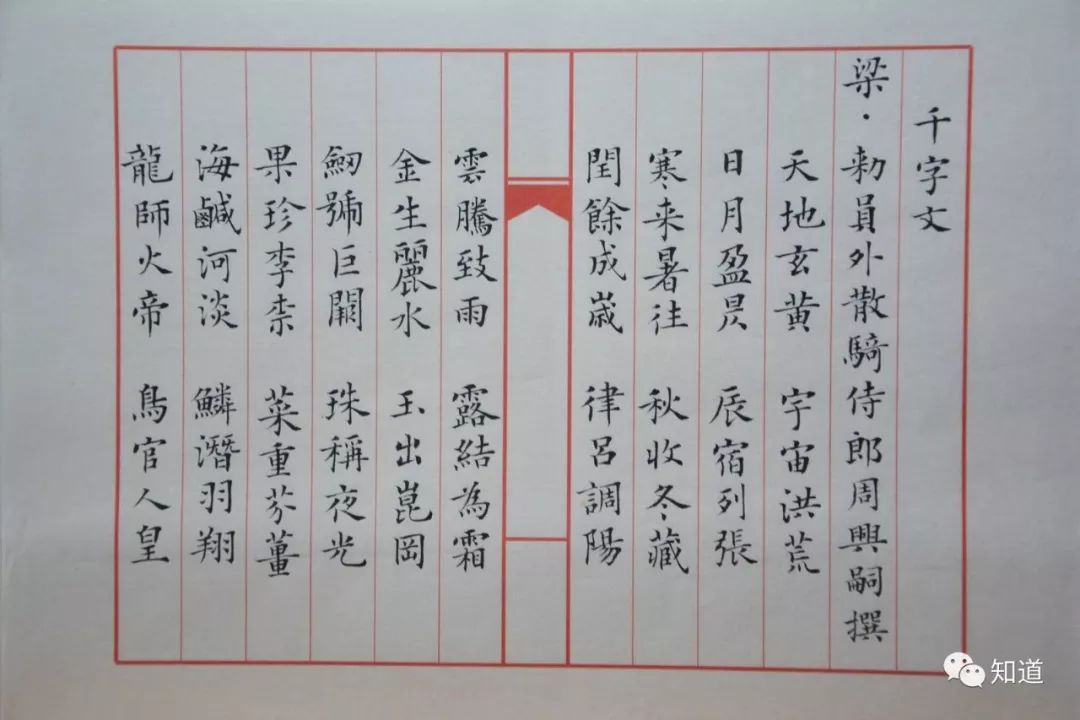 千字文
梁·勅員外散騎侍郎周興嗣撰
天地玄黄 宇宙洪荒
日月盈昃 辰宿列張
寒来暑往 秋收冬藏
閏餘成歲 律呂調陽
雲騰致雨 露結為霜
金生麗水 玉出崑岡
劒號巨闕 珠稱夜光
果珍李柰 菜重芥薑
海鹹河淡 鱗潛羽翔
龍師火帝 鳥官人皇
知道